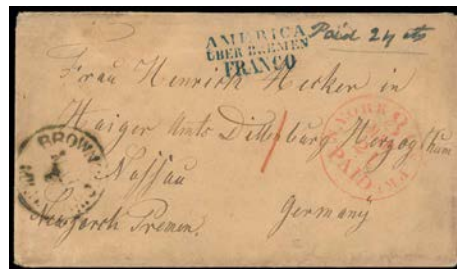 AMERICA
ÜBER BREMEN
FRANCO
Paid 24 cts
Frau Henrich Hecker in
Haiger Amts Dillenburg Herzogthum
Nassau
Germany
BROWN
YORK
PAID